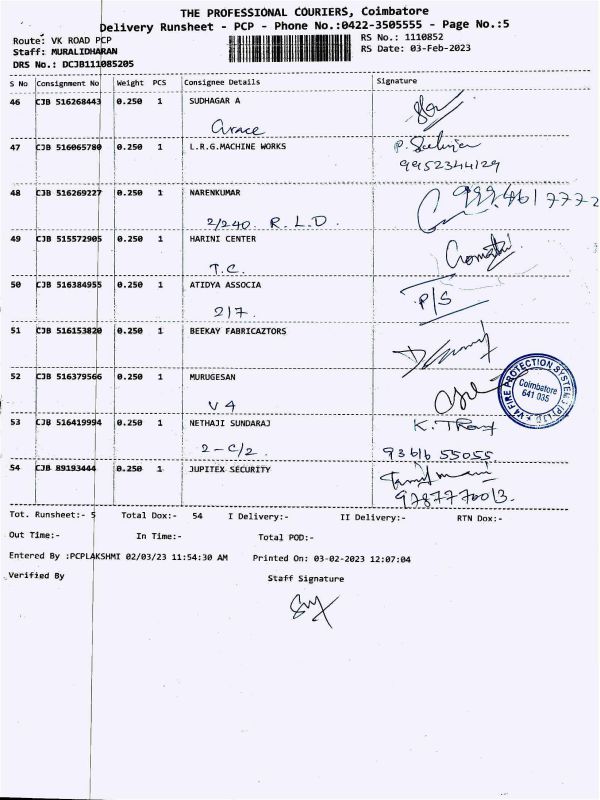 THE PROFESSIONAL COURIERS, Coimbatore
Delivery Runsheet - PCP - Phone No.:0422-3505555 - Page No.:5
Route: VK ROAD PCP RS No.: 1110852
Staff: MURALIDHARAN RS Date: 03-Feb-2023
DRS No.: DCJB111085205
S No Consignment No Weight PCS Consignee Details Signature
46 CJB 516268443 0.250 1 SUDHAGAR A
Grace
47 CJB 516065780 0.250 1 L.R.G.MACHINE WORKS
9952344129
48 CJB 516269227 0.250 1 NARENKUMAR
2/240. R.L.D.
49 CJB 515572905 0.250 1 HARINI CENTER
T.C.
50 CJB 516384955 0.250 1 ATIDYA ASSOCIA P/S
217
51 CJB 516153820 0.250 1 BEEKAY FABRICAZTORS
52 CJB 516379566 0.250 1 MURUGESAN
V4
V4 FIRE PROTECTION SYSTEMS (P) LTD
Coimbatore
641 035
53 CJB 516419994 0.250 1 NETHAJI SUNDARAJ
2-C/2. 93616 55055
54 CJB 89193444 0.250 1 JUPITEX SECURITY
9787770013.
Tot. Runsheet:- 5 Total Dox:- 54 I Delivery:- II Delivery:- RTN Dox:-
Out Time:- In Time:- Total POD:-
Entered By :PCPLAKSHMI 02/03/23 11:54:30 AM Printed On: 03-02-2023 12:07:04
Verified By Staff Signature